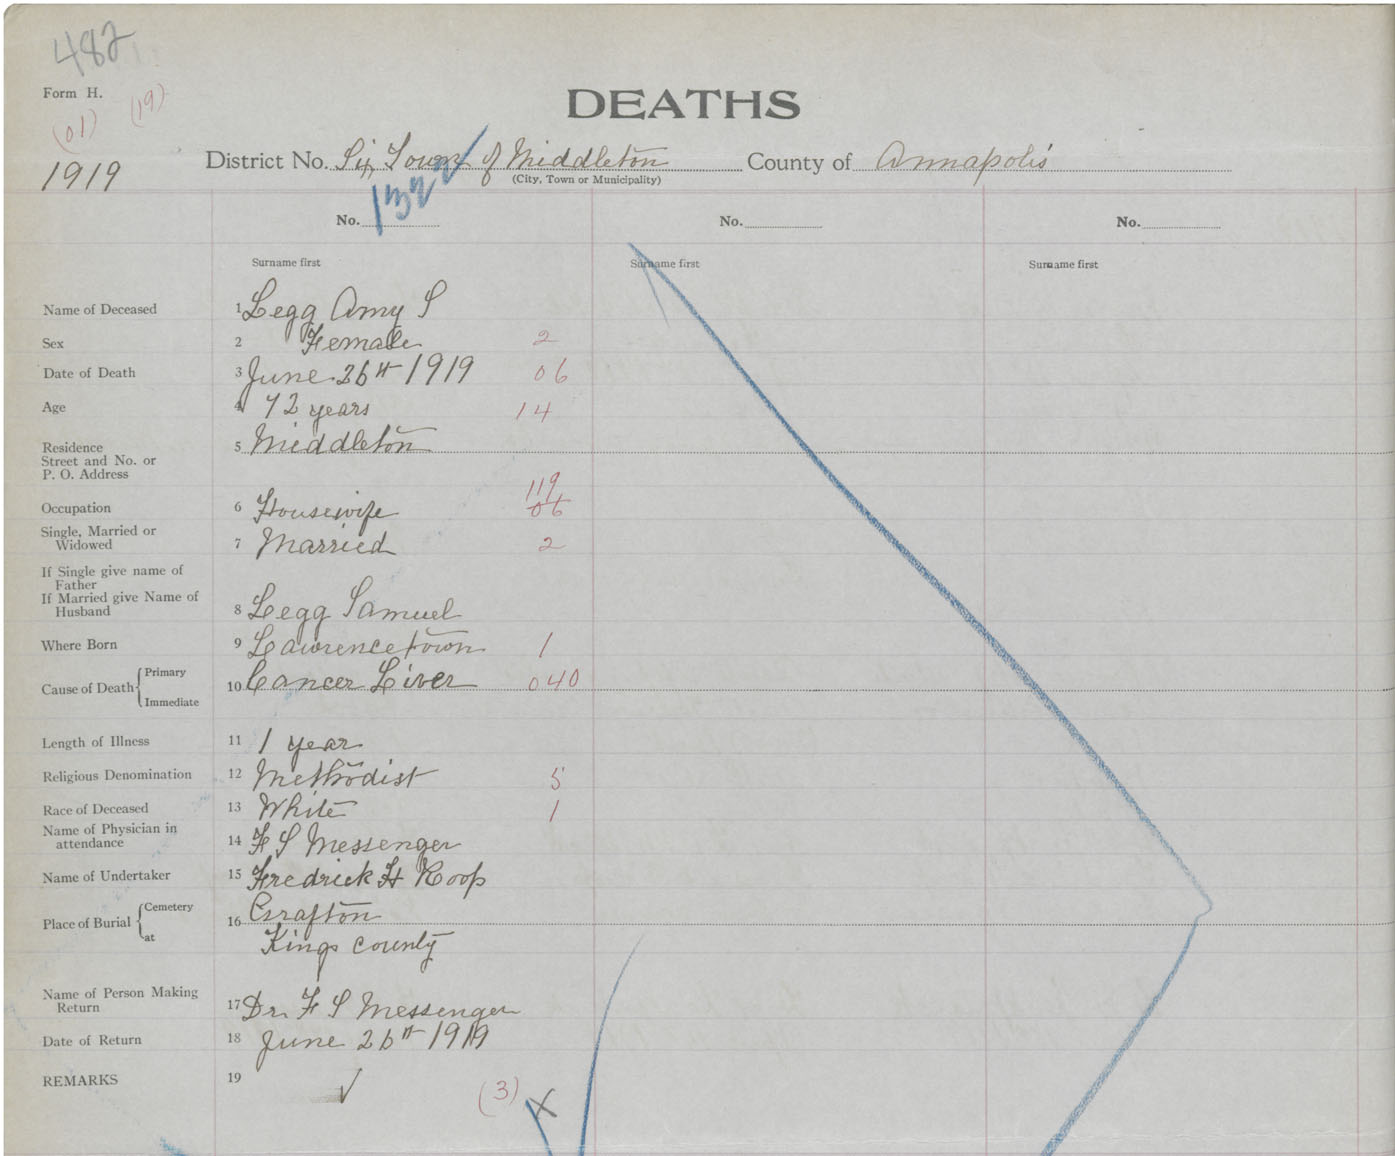 482
Form H.
(01) (19)
DEATHS
1919
District No. Six, Town of Middleton County of Annapolis
(City, Town or Municipality)
1322
No. No. No.
Surname first Surname first Surname first
Name of Deceased 1 Legg Amy S
Sex 2 Female 2
Date of Death 3 June 26th 1919 06
Age 4 72 years 14
Residence
Street and No. or
P. O. Address 5 Middleton
119
Occupation 6 Housewife 06
Single, Married or
Widowed 7 Married 2
If Single give name of
Father
If Married give Name of
Husband 8 Legg Samuel
Where Born 9 Lawrencetown 1
Cause of Death { Primary
10 Cancer Liver 040
Immediate
Length of Illness 11 1 year
Religious Denomination 12 Methodist 5
Race of Deceased 13 White 1
Name of Physician in
attendance 14 F S Messenger
Name of Undertaker 15 Fredrick H Roop
Place of Burial { Cemetery
16 Grafton
at
Kings County
Name of Person Making
Return 17 Dr. F S Messenger
Date of Return 18 June 26th 1919
REMARKS 19 ✓
(3) X